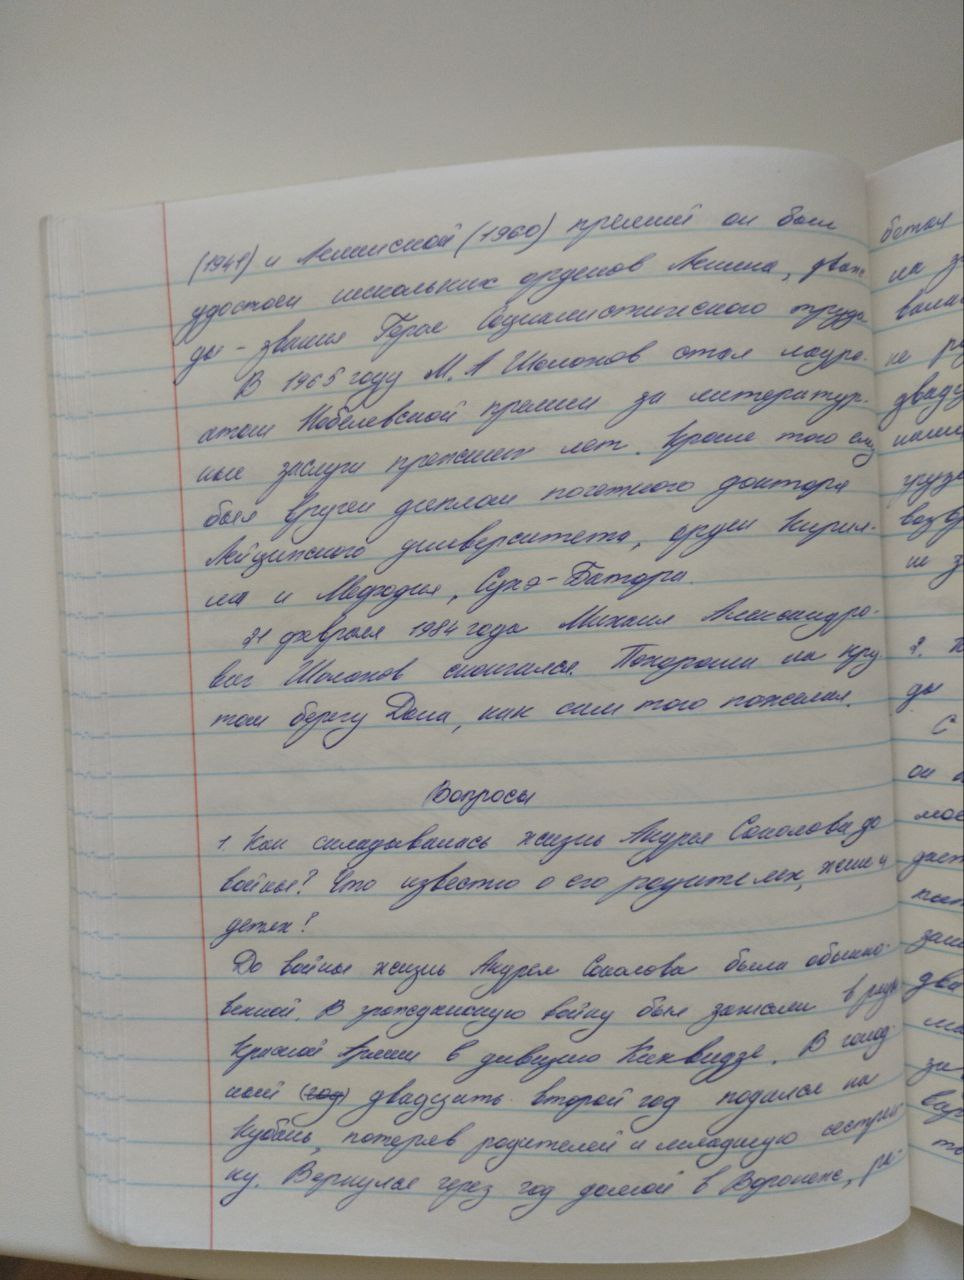 (1941) и Ленинской (1960) премий он был
удостоен нескольких орденов Ленина, дваж
ды - звания Героя Социалистического труда
В 1965 году М. А Шолохов стал лауре-
атом Нобелевской премии за литератур-
ные заслуги прежних лет. Кроме того ему
был вручен диплом почетного доктора
Лейпцигского университета, орден Кирил-
ла и Мефодия, Сухэ-Батора.
21 февраля 1984 года Михаил Александро-
вич Шолохов скончался. Похоронили на кру
том берегу Дона, как сам того пожелал.
Вопросы
1. Как складывалась жизнь Андрея Соколова до
войны? Что известно о его родителях, жене и
детях?
До войны жизнь Андрея Соколова была обыкно-
венной. В гражданскую войну был зачислен в ряды
Красной Армии в дивизию Киквидзе. В голод-
ный (год) двадцать второй год подался на
Кубань, потеряв родителей и младшую сестрен-
ку. Вернулся через год домой в Воронеж, ра-